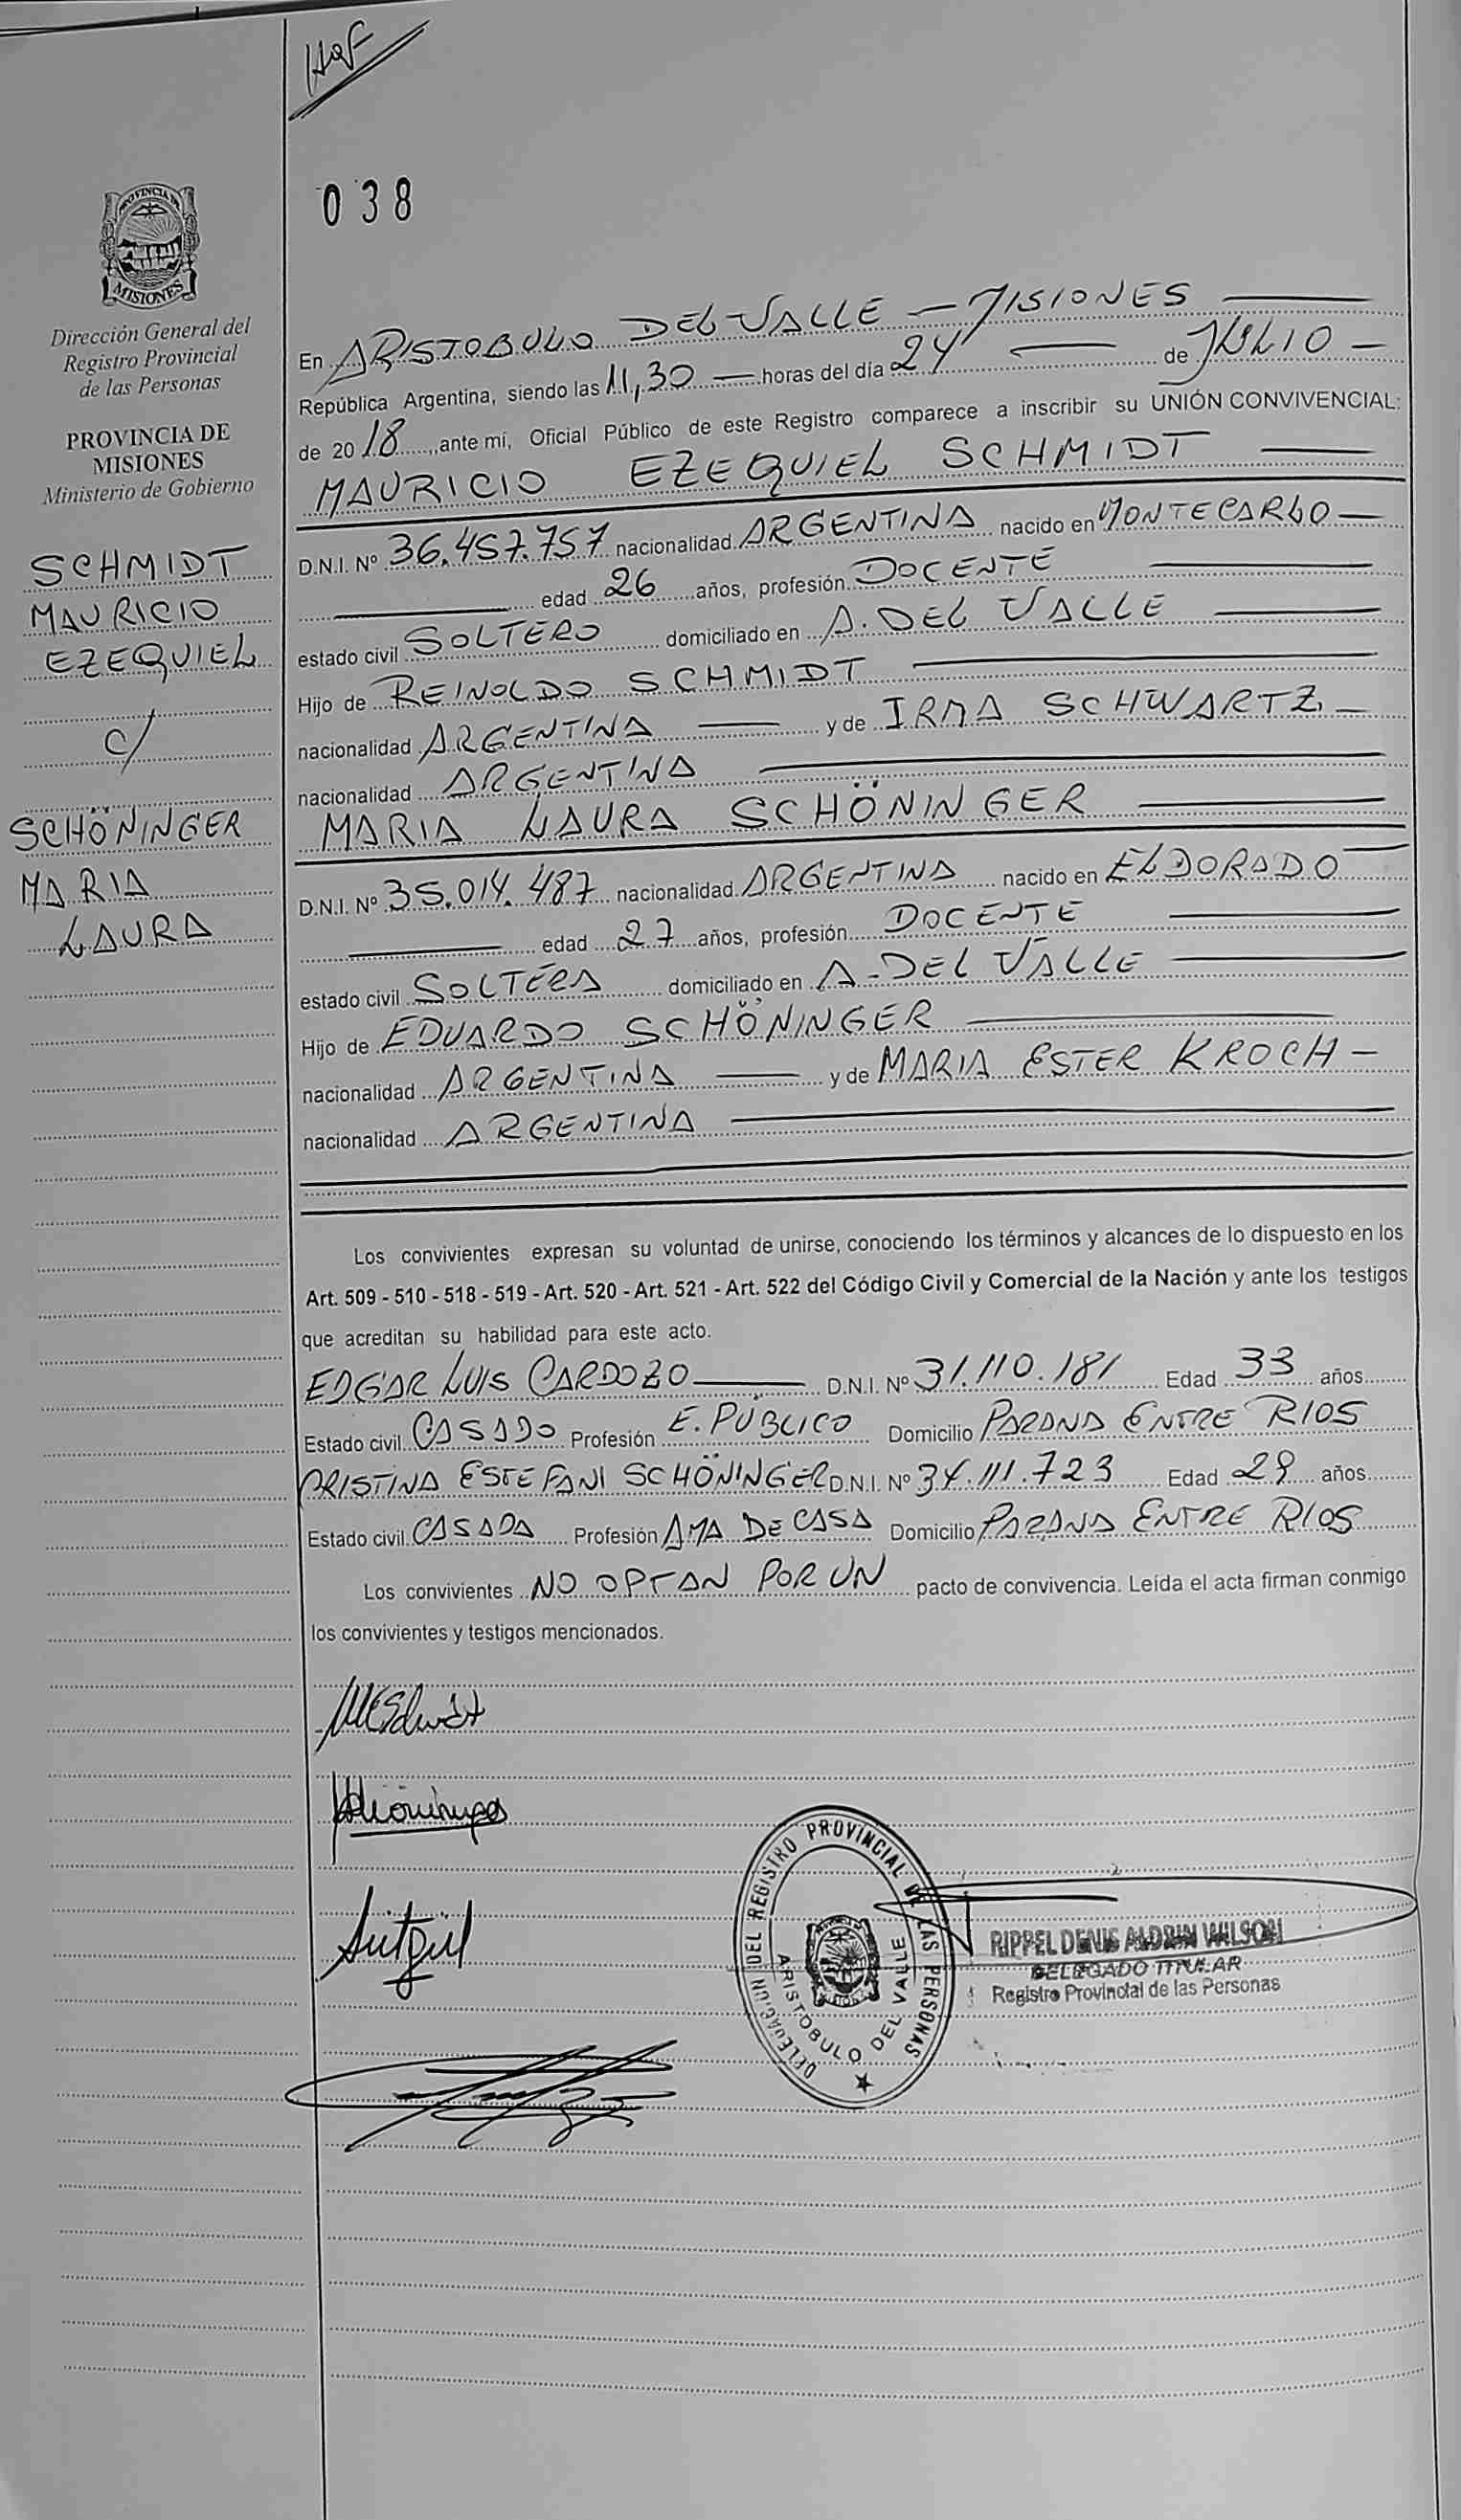 038
PROVINCIA DE
MISIONES
Dirección General del
Registro Provincial
de las Personas
PROVINCIA DE
MISIONES
Ministerio de Gobierno
SCHMIDT
MAURICIO
EZEQUIEL
c/
SCHÖNINGER
MARIA
LAURA
En ARISTOBULO DEL VALLE - MISIONES
República Argentina, siendo las 11,30 horas del día 24 de JULIO
de 2018, ante mí, Oficial Público de este Registro comparece a inscribir su UNIÓN CONVIVENCIAL:
MAURICIO EZEQUIEL SCHMIDT
D.N.I. Nº 36.457.757 nacionalidad ARGENTINA nacido en MONTECARLO
edad 26 años, profesión DOCENTE
estado civil SOLTERO domiciliado en A. DEL VALLE
Hijo de REINOLDO SCHMIDT
nacionalidad ARGENTINA y de IRMA SCHWARTZ
nacionalidad ARGENTINA
MARIA LAURA SCHÖNINGER
D.N.I. Nº 35.014.487 nacionalidad ARGENTINA nacido en ELDORADO
edad 27 años, profesión DOCENTE
estado civil SOLTERA domiciliado en A. DEL VALLE
Hijo de EDUARDO SCHÖNINGER
nacionalidad ARGENTINA y de MARIA ESTER KROCH
nacionalidad ARGENTINA
Los convivientes expresan su voluntad de unirse, conociendo los términos y alcances de lo dispuesto en los
Art. 509 - 510 - 518 - 519 - Art. 520 - Art. 521 - Art. 522 del Código Civil y Comercial de la Nación y ante los testigos
que acreditan su habilidad para este acto.
EDGAR LUIS CARDOZO D.N.I. Nº 31.110.181 Edad 33 años
Estado civil CASADO Profesión E. PÚBLICO Domicilio PARANA ENTRE RIOS
CRISTINA ESTEFANI SCHÖNINGER D.N.I. Nº 34.111.723 Edad 29 años
Estado civil CASADA Profesión AMA DE CASA Domicilio PARANA ENTRE RIOS
Los convivientes NO OPTAN POR UN pacto de convivencia. Leída el acta firman conmigo
los convivientes y testigos mencionados.
DELEGACION DEL REGISTRO PROVINCIAL DE LAS PERSONAS
ARISTOBULO DEL VALLE
RIPPEL DENIS ALDRIN WILSON
DELEGADO TITULAR
Registro Provincial de las Personas